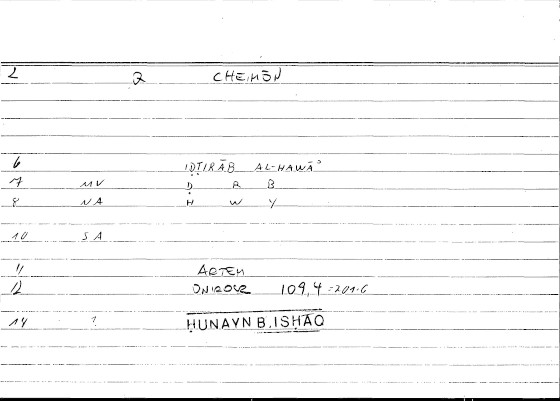 2 2 CHEIMŌN
6 IḌṬIRĀB AL-HAWĀʾ
7 MV Ḍ R B
8 NA H W Y
10 SA
11 ARTEM
12 ONIROCR 109,4 = 201.6
14 1 ḤUNAYN B. ISḤĀQ